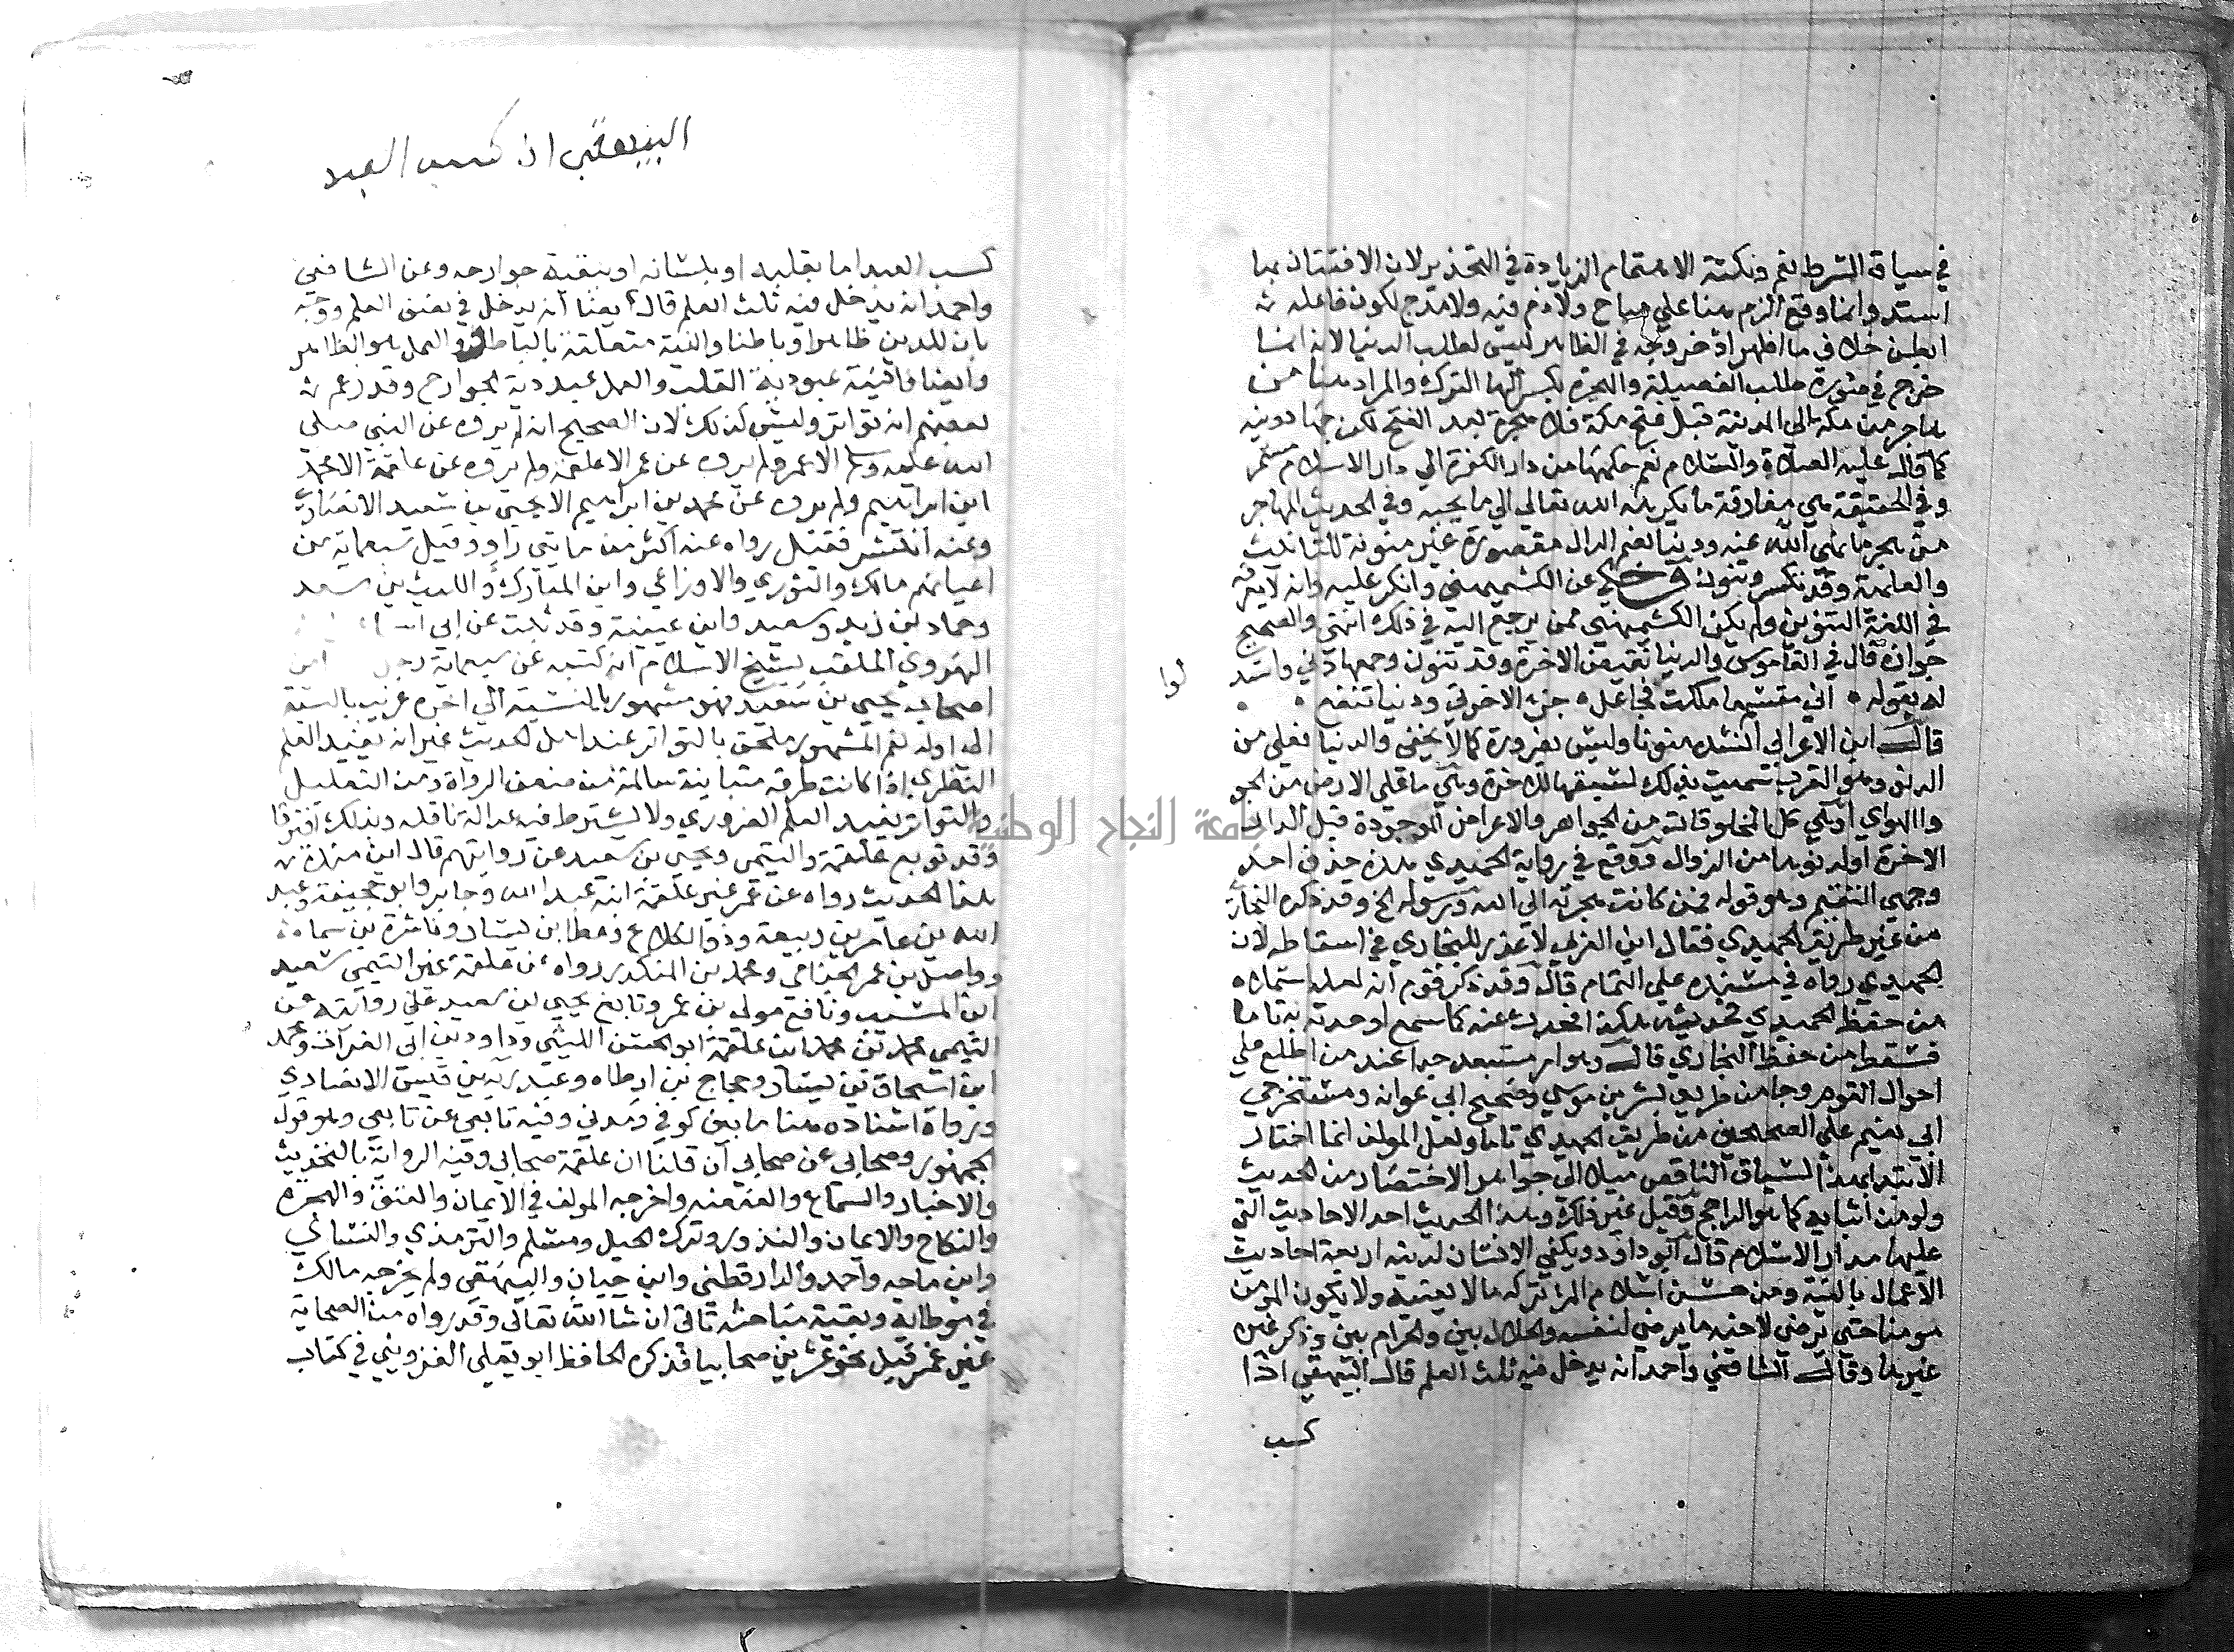 في سياق الشرط نعم ونكتة الاهتمام الزيادة في التحذير لان الافتتان بها
اشد وانما وقع الذم هنا علي مباح ولا ذم فيه ولا مدح لكون فاعله
ابطن خلاف ما اظهر اذ خروجه في الظاهر ليس لطلب الدنيا لانه انما
خرج في صورة طلب الفضيلة والهجرة بكسر الهاء الترك والمراد هنا من
هاجر من مكة الي المدينة قبل فتح مكة فلا هجرة بعد الفتح لكن جهاد ونية
كما قال عليه الصلاة والسلام نعم حكمها من دار الكفر الي دار الاسلام مستمر
وفي الحقيقة هي مفارقة ما يكرهه الله تعالي الي ما يحبه وفي الحديث المهاجر
من هجر ما نهي الله عنه ودنيا بضم الدال مقصورة غير منونة للتانيث
والعلمية وقد تكسر وتنون وحكي عن الكشميهني وانكر عليه وانه لا يعرف
في اللغة التنوين ولم يكن الكشميهني ممن يرجع اليه في ذلك انتهي والصحيح
جوازه قال في القاموس والدنيا نقيض الاخرة وقد تنون وجمعها دني واستد
لوا
له بقوله اني مقسم ما ملكت فجاعل جزء الاخرتي ودنيا تنفع
قال ابن الاعرابي انشده منونا وليس بضرورة كما لا يخفي والدنيا فعلي من
الدنو وهو القرب سميت بذلك لسبقها للاخرة وهي ما علي الارض من الجو
والهواي او هي كل المخلوقات من الجواهر والاعراض الموجودة قبل الدار
الاخرة اولدنوها من الزوال ووقع في رواية الحميدي هذه حذف احد
وجهي التقسيم وهو قوله فمن كانت هجرته الي الله ورسوله الخ وقد ذكره البخاري
من غير طريق الحميدي فقال ابن العربي لا عذر للبخاري في اسقاطه لان
الحميدي رواه في مسنده علي التمام قال وقد ذكر قوم انه لعله استملاه
من حفظ الحميدي فحدثه هكذا فحدث عنه كما سمع او حدثه به تاما
فسقط من حفظ البخاري قال وهو امر مستبعد جدا عند من اطلع علي
احوال القوم وجا من طريق بشر بن موسي وصحيح ابي عوانه ومستخرجي
ابي نعيم علي الصحيحين من طريق الحميدي تاما ولعل المولف انما اختار
الابتدا بهذا السياق الناقص ميلا الي جواز الاختصار من الحديث
ولو من اثنايه كما هو الراجح وقيل غير ذلك وهذا الحديث احد الاحاديث التي
عليها مدار الاسلام قال ابو داود ويكفي الانسان لدينه اربعة احاديث
الاعمال بالنية ومن حسن اسلام المرء تركه ما لا يعنيه ولا يكون المومن
مومنا حتي يرضي لاخيه ما يرضي لنفسه والحلال بين والحرام بين وذكر غيره
غيرها وقال الشافعي واحمد انه يدخل فيه ثلث العلم قال البيهقي اذا
كسب
البيهقي اذ كسب العبد
كسب العبد اما بقلبه او بلسانه او ببقية جوارحه وعن الشافعي
واحمد انه يدخل فيه ثلث العلم قال ايضا انه يدخل في نصف العلم ووجه
بان للدين ظاهرا وباطنا والنية متعلقة بالباطن والعمل هو الظاهر
وايضا فالنية عبودية القلب والعمل عبودية الجوارح وقد زعم
بعضهم انه تواتر وليس كذلك لان الصحيح انه لم يروه عن النبي صلي
الله عليه وسلم الا عمر ولم يروه عن عمر الا علقمة ولم يروه عن علقمة الا محمد
ابن ابراهيم ولم يروه عن محمد بن ابراهيم الا يحيي بن سعيد الانصاري
وعنه انتشر فقيل رواه عنه اكثر من مايتي راو وقيل سبعماية من
اعيانهم مالك والثوري والاوزاعي وابن المبارك والليث بن سعد
وحماد بن زيد وسعيد وابن عيينة وقد ثبت عن ابي
الهروي الملقب بشيخ الاسلام انه كتبه عن سبعماية رجل من
اصحاب يحيي بن سعيد فهو مشهور بالنسبة الي اخره غريب بالنسبة
الي اوله نعم المشهور ملحق بالتواتر عند اهل الحديث غير انه يفيد العلم
النظري اذا كانت طرقه متباينة سالمة من ضعف الرواة ومن التعليل
والتواتر يفيد العلم الضروري ولا يشترط فيه عدالة ناقله وبذلك افترقا
وقد توبع علقمة والتيمي ويحيي بن سعيد عن روايتهم قال ابن منده
هذا الحديث رواه عن عمر غير علقمة ابنه عبد الله وجابر وابو جحيفة وعبد
الله بن عامر بن ربيعة وذو الكلاع وعطا بن يسار وناشرة بن سمي
وواصل بن عمر الجذامي ومحمد بن المنكدر رواه عن علقمة غير التيمي سعيد
ابن المسيب ونافع مولي بن عمر وتابع يحيي بن سعيد علي روايته عن
التيمي محمد بن محمد ابن علقمة ابو الحسن الليثي وداود بن ابي الفرات ومحمد
ابن اسحاق بن يسار وحجاج بن ارطاه وعبد ربه بن قيس الانصاري
ورواة اسناده هنا ما بين كوفي ومدني وفيه تابعي عن تابعي وهو قول
الجمهور وصحابي عن صحابي ان قلنا ان علقمة صحابي وفيه الرواية بالتحديث
والاخبار والسماع والعنعنه واخرجه المولف في الايمان والعتق والهجرة
والنكاح والايمان والنذور وترك الحيل ومسلم والترمذي والنساي
وابن ماجه واحمد والدارقطني وابن حبان والبيهقي ولم يخرجه مالك
في موطايه وبقية مباحثه تاتي ان شا الله تعالي وقد رواه من الصحابة
غير عمر قيل نحو عشرين صحابيا فذكره الحافظ ابو يعلي القزويني في كتاب
جامعة النجاح الوطنية